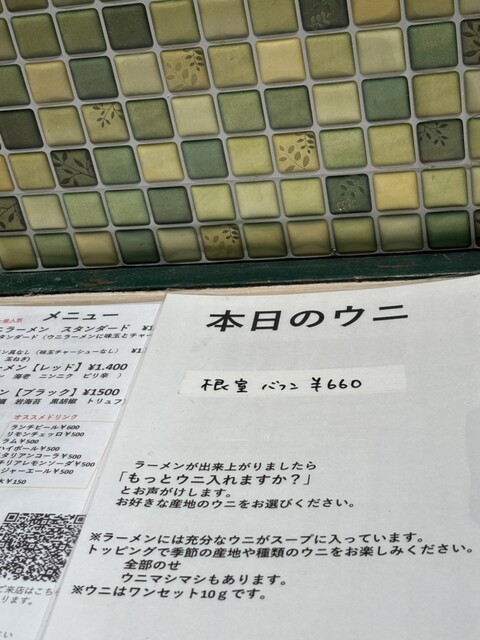 メニュー
ラーメン スタンダード ¥1
スタンダード（ウニラーメンに味玉とチャー
ン具なし（味玉チャーシューなし） ¥1
玉ねぎ）
ーメン【レッド】¥1.400
海老 ニンニク ピリ辛 ）
ン【ブラック】¥1500
岩海苔 黒胡椒 トリュフ
オススメドリンク
ランチビール¥600
リモンチェッロ¥500
ラム¥500
ハイボール¥500
タリアンコーラ¥500
チリアレモンソーダ¥500
ジャーエール¥500
¥150
ご来店はこち
ります。
本日のウニ
根室 バフン ¥660
ラーメンが出来上がりましたら
「もっとウニ入れますか？」
とお声がけします。
お好きな産地のウニをお選びください。
※ラーメンには充分なウニがスープに入っています。
トッピングで季節の産地や種類のウニをお楽しみください。
全部のせ
ウニマシマシもあります。
※ウニはワンセット10gです。